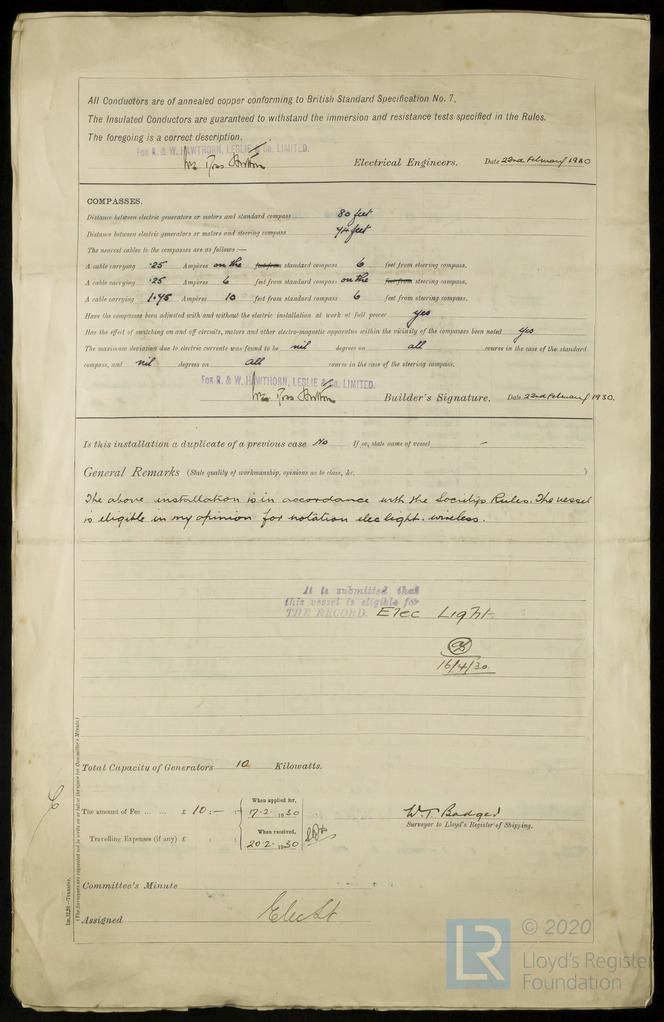 All Conductors are of annealed copper conforming to British Standard Specification No. 7.
The Insulated Conductors are guaranteed to withstand the immersion and resistance tests specified in the Rules.
The foregoing is a correct description.
FOR R. & W. HAWTHORN, LESLIE & Co. LIMITED.
Wm Ross Hutton Electrical Engineers. Date 22nd February 1930
COMPASSES.
Distance between electric generators or motors and standard compass 80 feet
Distance between electric generators or motors and steering compass 74 feet
The nearest cables to the compasses are as follows:—
A cable carrying .25 Ampères on the feet from standard compass 6 feet from steering compass.
A cable carrying .25 Ampères 6 feet from standard compass on the feet from steering compass.
A cable carrying 1.45 Ampères 10 feet from standard compass 6 feet from steering compass.
Have the compasses been adjusted with and without the electric installation at work at full power yes
Has the effect of switching on and off circuits, motors and other electro-magnetic apparatus within the vicinity of the compasses been noted yes
The maximum deviation due to electric currents was found to be nil degrees on all course in the case of the standard
compass, and nil degrees on all course in the case of the steering compass.
FOR R. & W. HAWTHORN, LESLIE & Co. LIMITED.
Wm Ross Hutton Builder's Signature. Date 22nd February 1930.
Is this installation a duplicate of a previous case No If so, state name of vessel –
General Remarks (State quality of workmanship, opinions as to class, &c. )
The above installation is in accordance with the Society's Rules. The vessel
is eligible in my opinion for notation elec light. wireless.
It is submitted that
this vessel is eligible for
THE RECORD. Elec Light.
16/4/30.
Total Capacity of Generators 10 Kilowatts.
The amount of Fee ... ... £ 10:– : When applied for, 17.2.1930
Travelling Expenses (if any) £ : : When received, 20.2.1930
W.T. Badger
Surveyor to Lloyd's Register of Shipping.
Committee's Minute
Assigned Elec Lt
(The Surveyors are requested not to write on or below the space for Committee's Minute.)
© 2020
LR
Lloyd's Register
Foundation